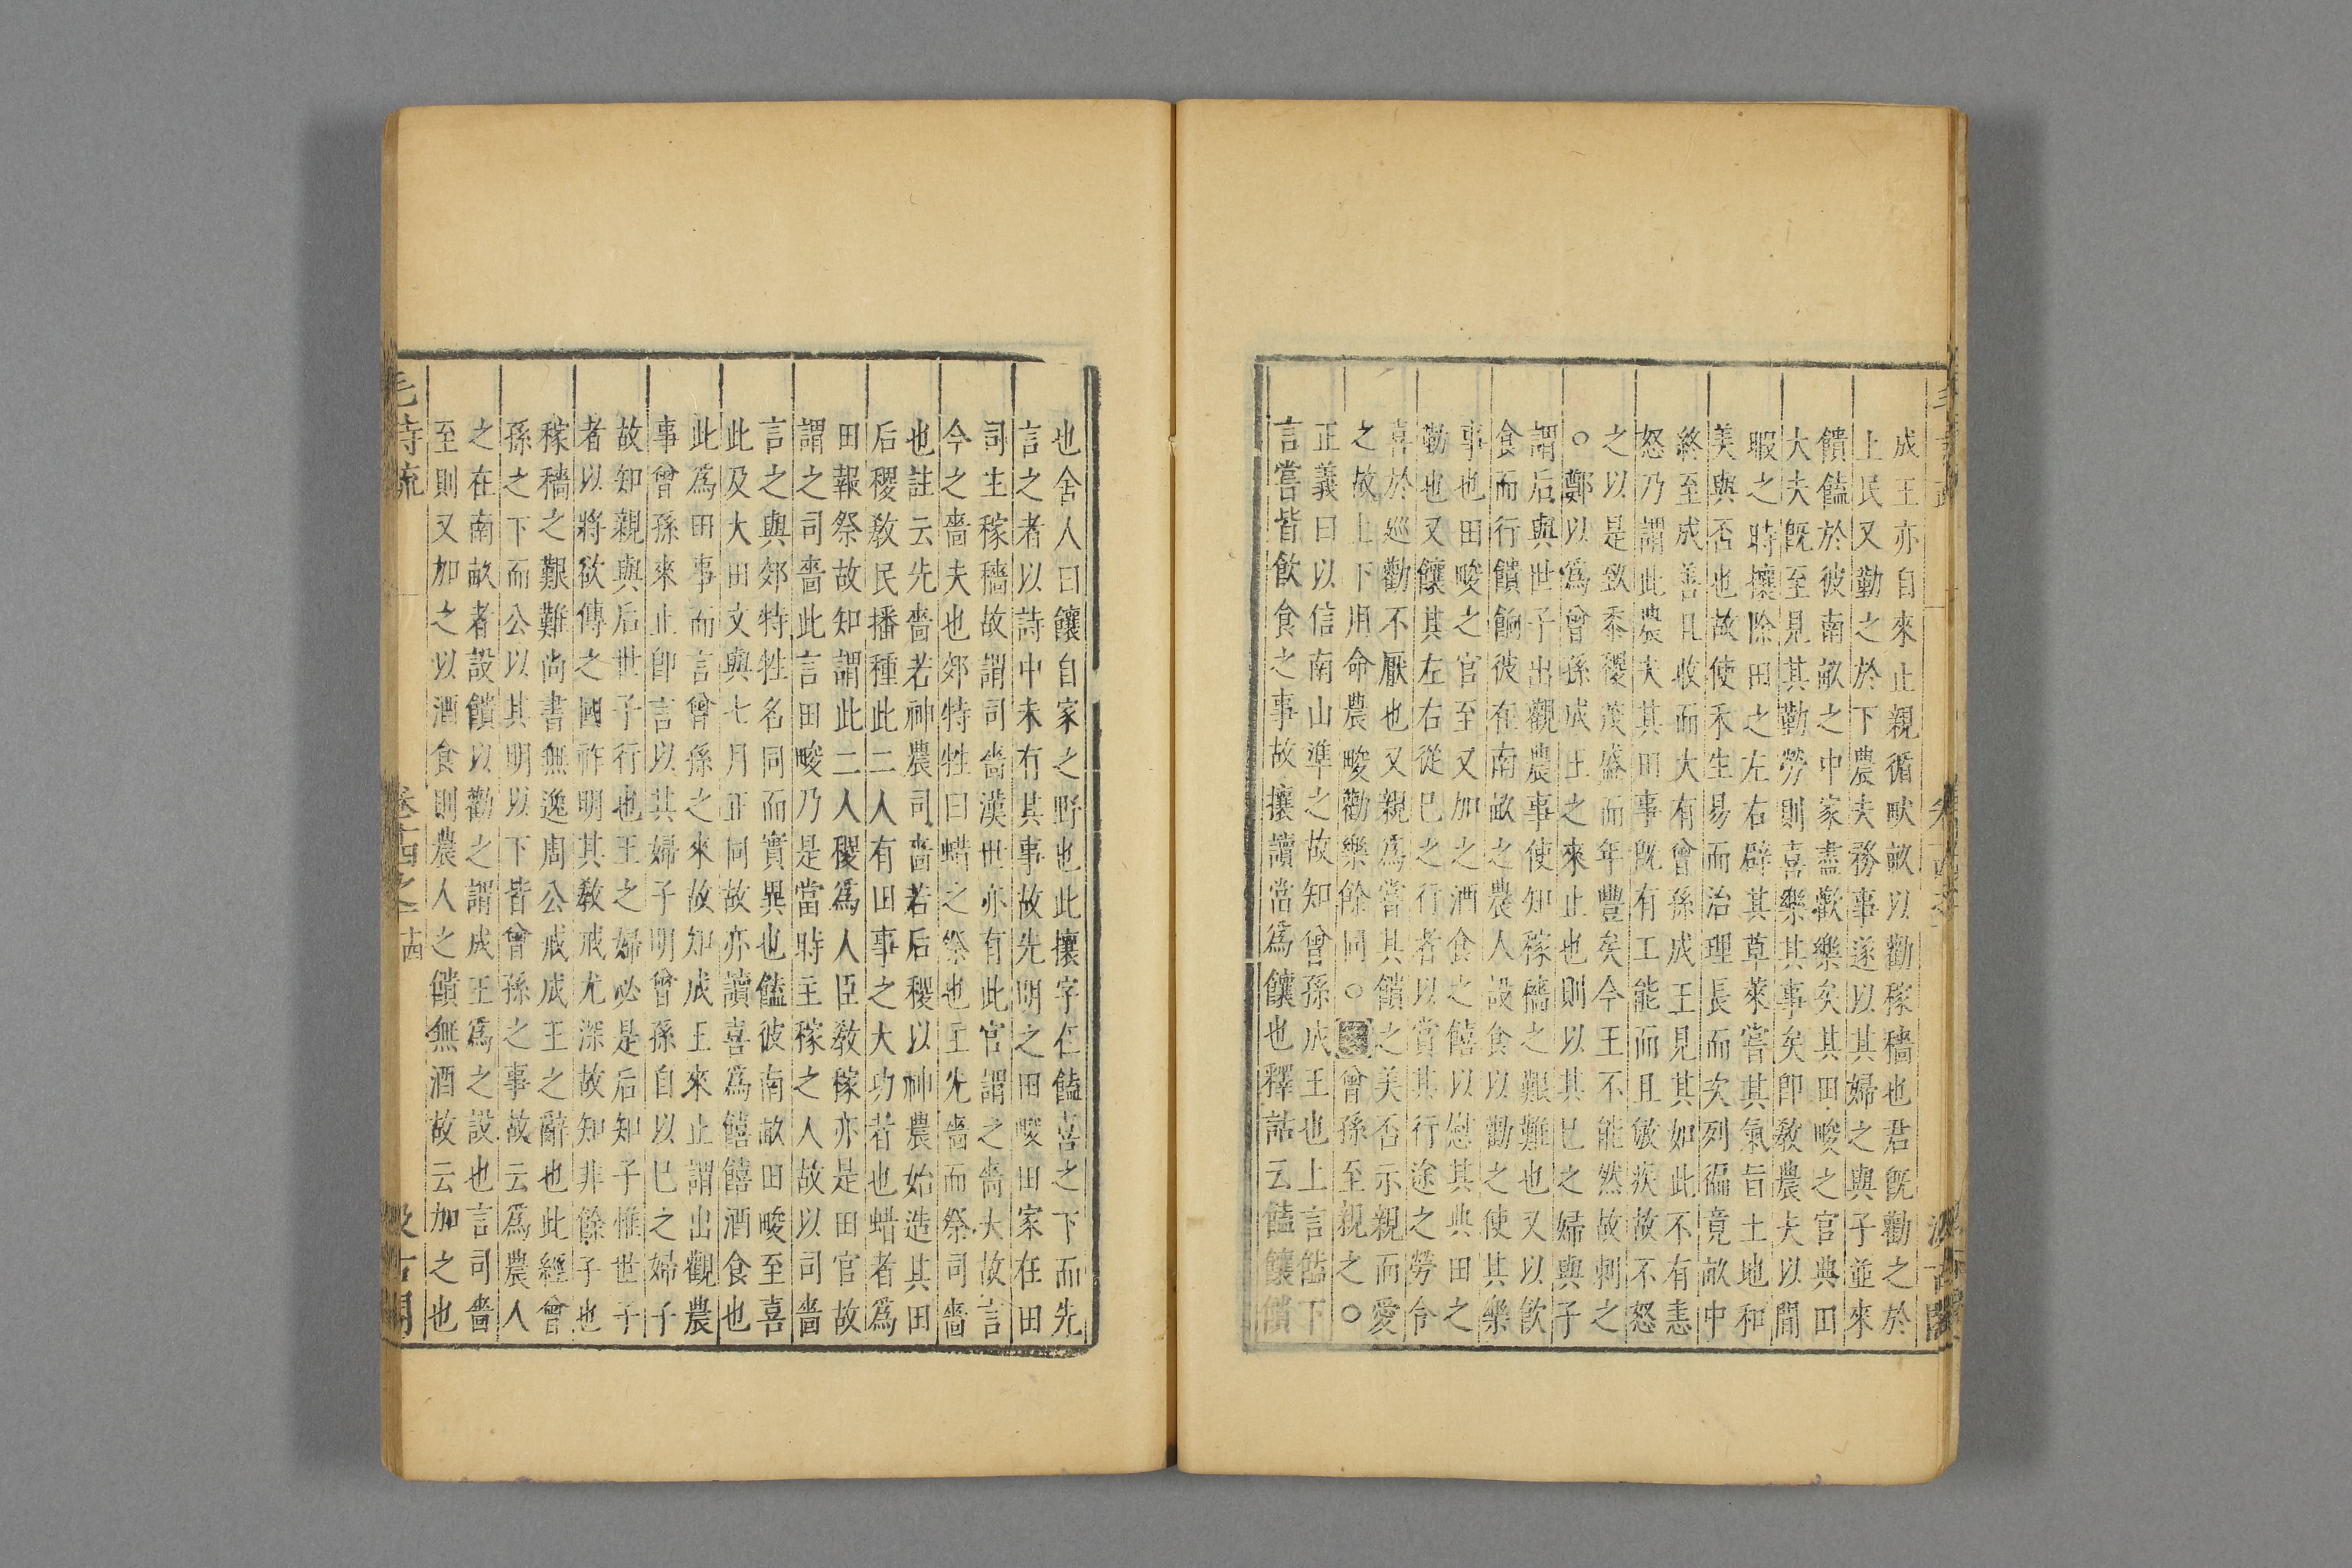 成王亦自來止親循畎畝以勸稼穡也君旣勸之於
上民又勤之於下農夫務事遂以其婦之與子並來
饋饁於彼南畝之中家盡歡樂矣其田畯之官典田
大夫旣至見其勤勞則喜樂其事矣卽敎農夫以閒
暇之時攘除田之左右辟其草萊嘗其氣旨土地和
美與否也故使禾生易而治理長而夾列徧竟畝中
終至成善且收而大有曾孫成王見其如此不有恚
怒乃謂此農夫其田事旣有工能而且敏疾故不怒
之以是致黍稷茂盛而年豐矣今王不能然故刺之
○鄭以爲曾孫成王之來止也則以其已之婦與子
謂后與世子出觀農事使知稼穡之艱難也又以飮
食而行饋餉彼在南畝之農人設食以勸之使其樂
事也田畯之官至又加之酒食之饎以慰其典田之
勤也又饟其左右從已之行者以賞其行途之勞令
喜於巡勸不厭也又親爲嘗其饋之美否示親而愛
之故上下用命農畯勸樂餘同○曾孫至親之○
正義曰以信南山準之故知曾孫成王也上言饁下
言嘗皆飮食之事故攘讀當爲饟也釋詁云饁饟饋
也舍人曰饟自家之野也此攘字在饁喜之下而先
言之者以詩中未有其事故先明之田畯田家在田
司主稼穡故謂司嗇漢世亦有此官謂之嗇夫故言
今之嗇夫也郊特牲曰蜡之祭也主先嗇而祭司嗇
也註云先嗇若神農司嗇若后稷以神農始造其田
后稷敎民播種此二人有田事之大功者也蜡者爲
田報祭故知謂此二人稷爲人臣敎稼亦是田官故
謂之司嗇此言田畯乃是當時主稼之人故以司嗇
言之與郊特牲名同而實異也饁彼南畝田畯至喜
此及大田文與七月正同故亦讀喜爲饎饎酒食也
此爲田事而言曾孫之來故知成王來止謂出觀農
事曾孫來止卽言以其婦子明曾孫自以已之婦子
故知親與后世子行也王之婦必是后知子惟世子
者以將欲傳之國祚明其敎戒尤深故知非餘子也
稼穡之艱難尚書無逸周公戒成王之辭也此經曾
孫之下而公以其明以下皆曾孫之事故云爲農人
之在南畝者設饋以勸之謂成王爲之設也言司嗇
至則又加之以酒食則農人之饋無酒故云加之也
毛詩疏 卷十四之一 汲古閣